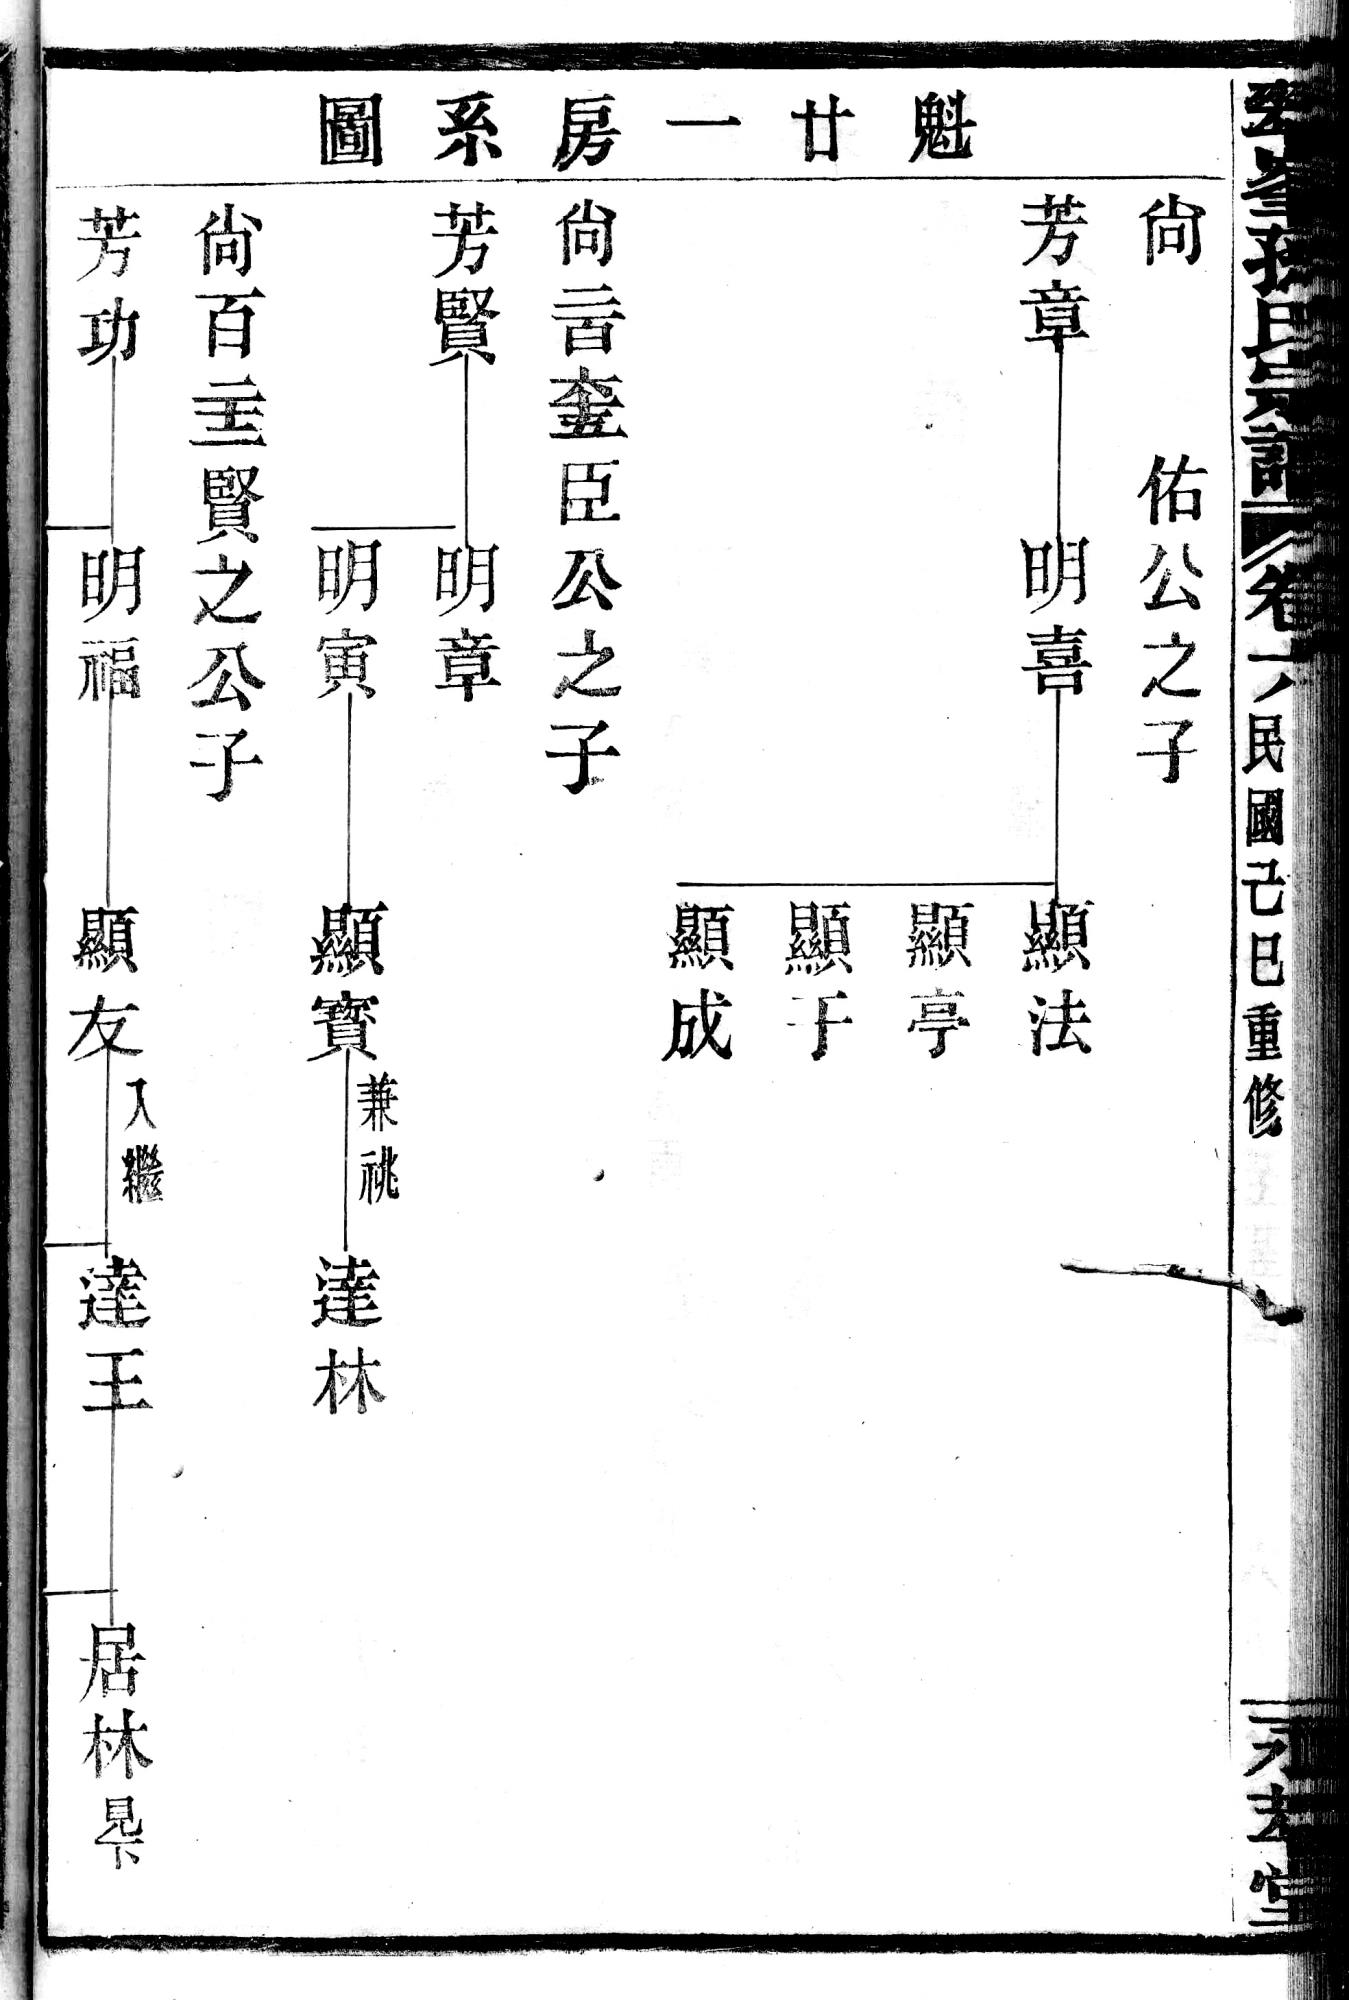 魁廿一房系圖
尙　佑公之子
芳章　明喜　顯法
顯亭
顯于
顯成
尙二百臣公之子
芳賢　明章
明寅　顯寶兼祧　達林
尙百賢之公子
芳功　明福　顯友入繼　達王　居林見下
孫氏宗譜　卷　民國己巳重修
堂